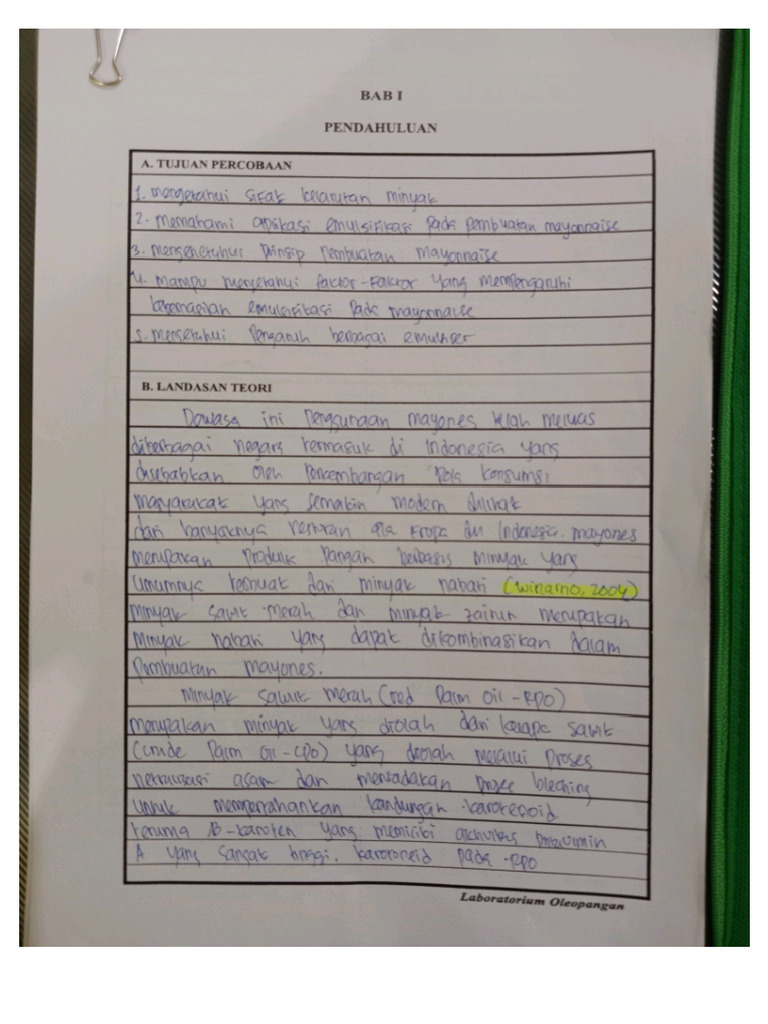 BAB I
PENDAHULUAN
A. TUJUAN PERCOBAAN
1. mengetahui sifat kelarutan minyak
2. memahami aplikasi emulsifikasi pada pembuatan mayonnaise
3. mengenetahui Prinsip pembuatan mayonnaise
4. mampu mengetahui faktor-faktor yang mempengaruhi
keberhasilan emulsifikasi pada mayonnaise
5. mengetahui Pengaruh berbagai emulsifier
B. LANDASAN TEORI
Dewasa ini penggunaan mayones telah meluas
diberbagai negara termasuk di Indonesia yang
disebabkan oleh Perkembangan Pola konsumsi
masyarakat yang semakin modern dilihat
dari banyaknya restoran ala Eropa di Indonesia. mayones
merupakan Produk Pangan berbasis minyak yang
umumnya terbuat dari minyak nabati (winarno, 2004)
minyak sawit merah dan minyak zaitun merupakan
minyak nabati yang dapat dikombinasikan dalam
Pembuatan mayones.
minyak sawit merah (red Palm Oil - RPO)
merupakan minyak yang diolah dari kelapa sawit
(crude Palm Oil - CPO) yang diolah melalui Proses
netralisasi asam dan meniadakan proses bleaching
untuk mempertahankan kandungan karotenoid
terutama B-karoten yang memiliki aktivitas provitamin
A yang sangat tinggi. karotenoid pada RPO
Laboratorium Oleopangan